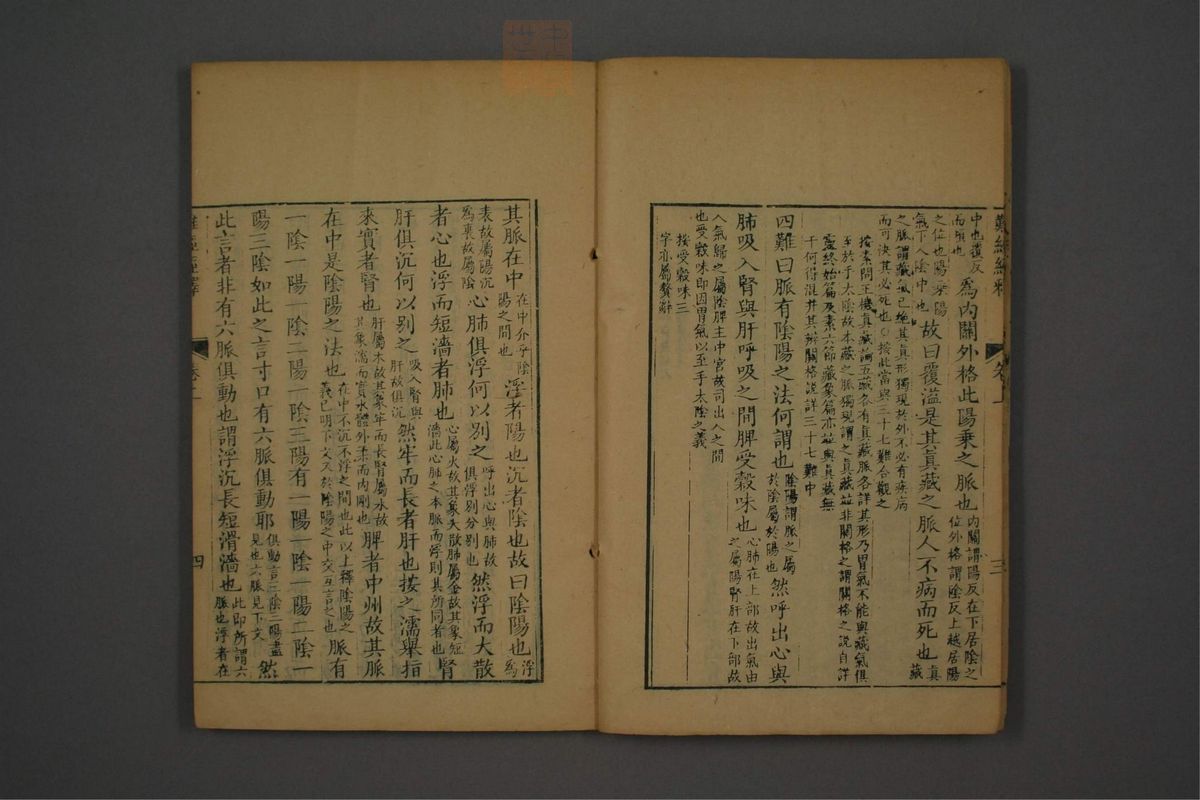 中也覆反
而順也
為內關外格此陽乘之脈也
內關謂陽反在下居陰之
位外格謂陰反上越居陽
之位也陽乘陽
氣下入陰中也
故曰覆溢是其真藏之脈人不病而死也
真
藏
之脈謂藏氣已絶其真形獨現於外不必有疾病
而可決其必死也○按此當與三十七難合觀之
按素問玉機真藏論五藏各有真藏脈各詳其形乃胃氣不能與藏氣俱
至於手太陰故本藏之脈獨現謂之真藏並非關格之謂關格之說自詳
靈終始篇及素六節藏象篇亦並與真藏無
干何得混并其辨關格說詳三十七難中
四難曰脈有陰陽之法何謂也
陰陽謂脈之屬
於陰屬於陽也
然呼出心與
肺吸入腎與肝呼吸之間脾受穀味也
心肺在上部故出氣由
之屬陽腎肝在下部故
入氣歸之屬陰脾主中宮故司出入之間
也受穀味即因胃氣以至手太陰之義
按受穀味三
字亦屬贅辭
難經經釋
卷上
三
其脈在中
在中介乎陰
陽之間也
浮者陽也沉者陰也故曰陰陽也
浮
為
表故屬陽沉
為裏故屬陰
心肺俱浮何以别之
呼出心與肺故
俱浮别分别也
然浮而大散
者心也浮而短濇者肺也
心屬火故其象大散肺屬金故其象短
濇此心肺之本脈而浮則其所同者也
腎
肝俱沉何以别之
吸入腎與
肝故俱沉
然牢而長者肝也按之濡舉指
來實者腎也
肝屬木故其象牢而長腎屬水故
其象濡而實水體外柔而内剛也
脾者中州故其脈
在中是陰陽之法也
在中不沉不浮之間也此以上釋陰陽之
義已明下文又於陰陽之中交互言之也
脈有
一陰一陽一陰二陽一陰三陽有一陽一陰一陽二陰一
陽三陰如此之言寸口有六脈俱動耶
俱動言三陰三陽盡
見也六脈見下文
然
此言者非有六脈俱動也謂浮沉長短滑濇也
此即所謂六
脈也浮者在
難經經釋
卷上
四